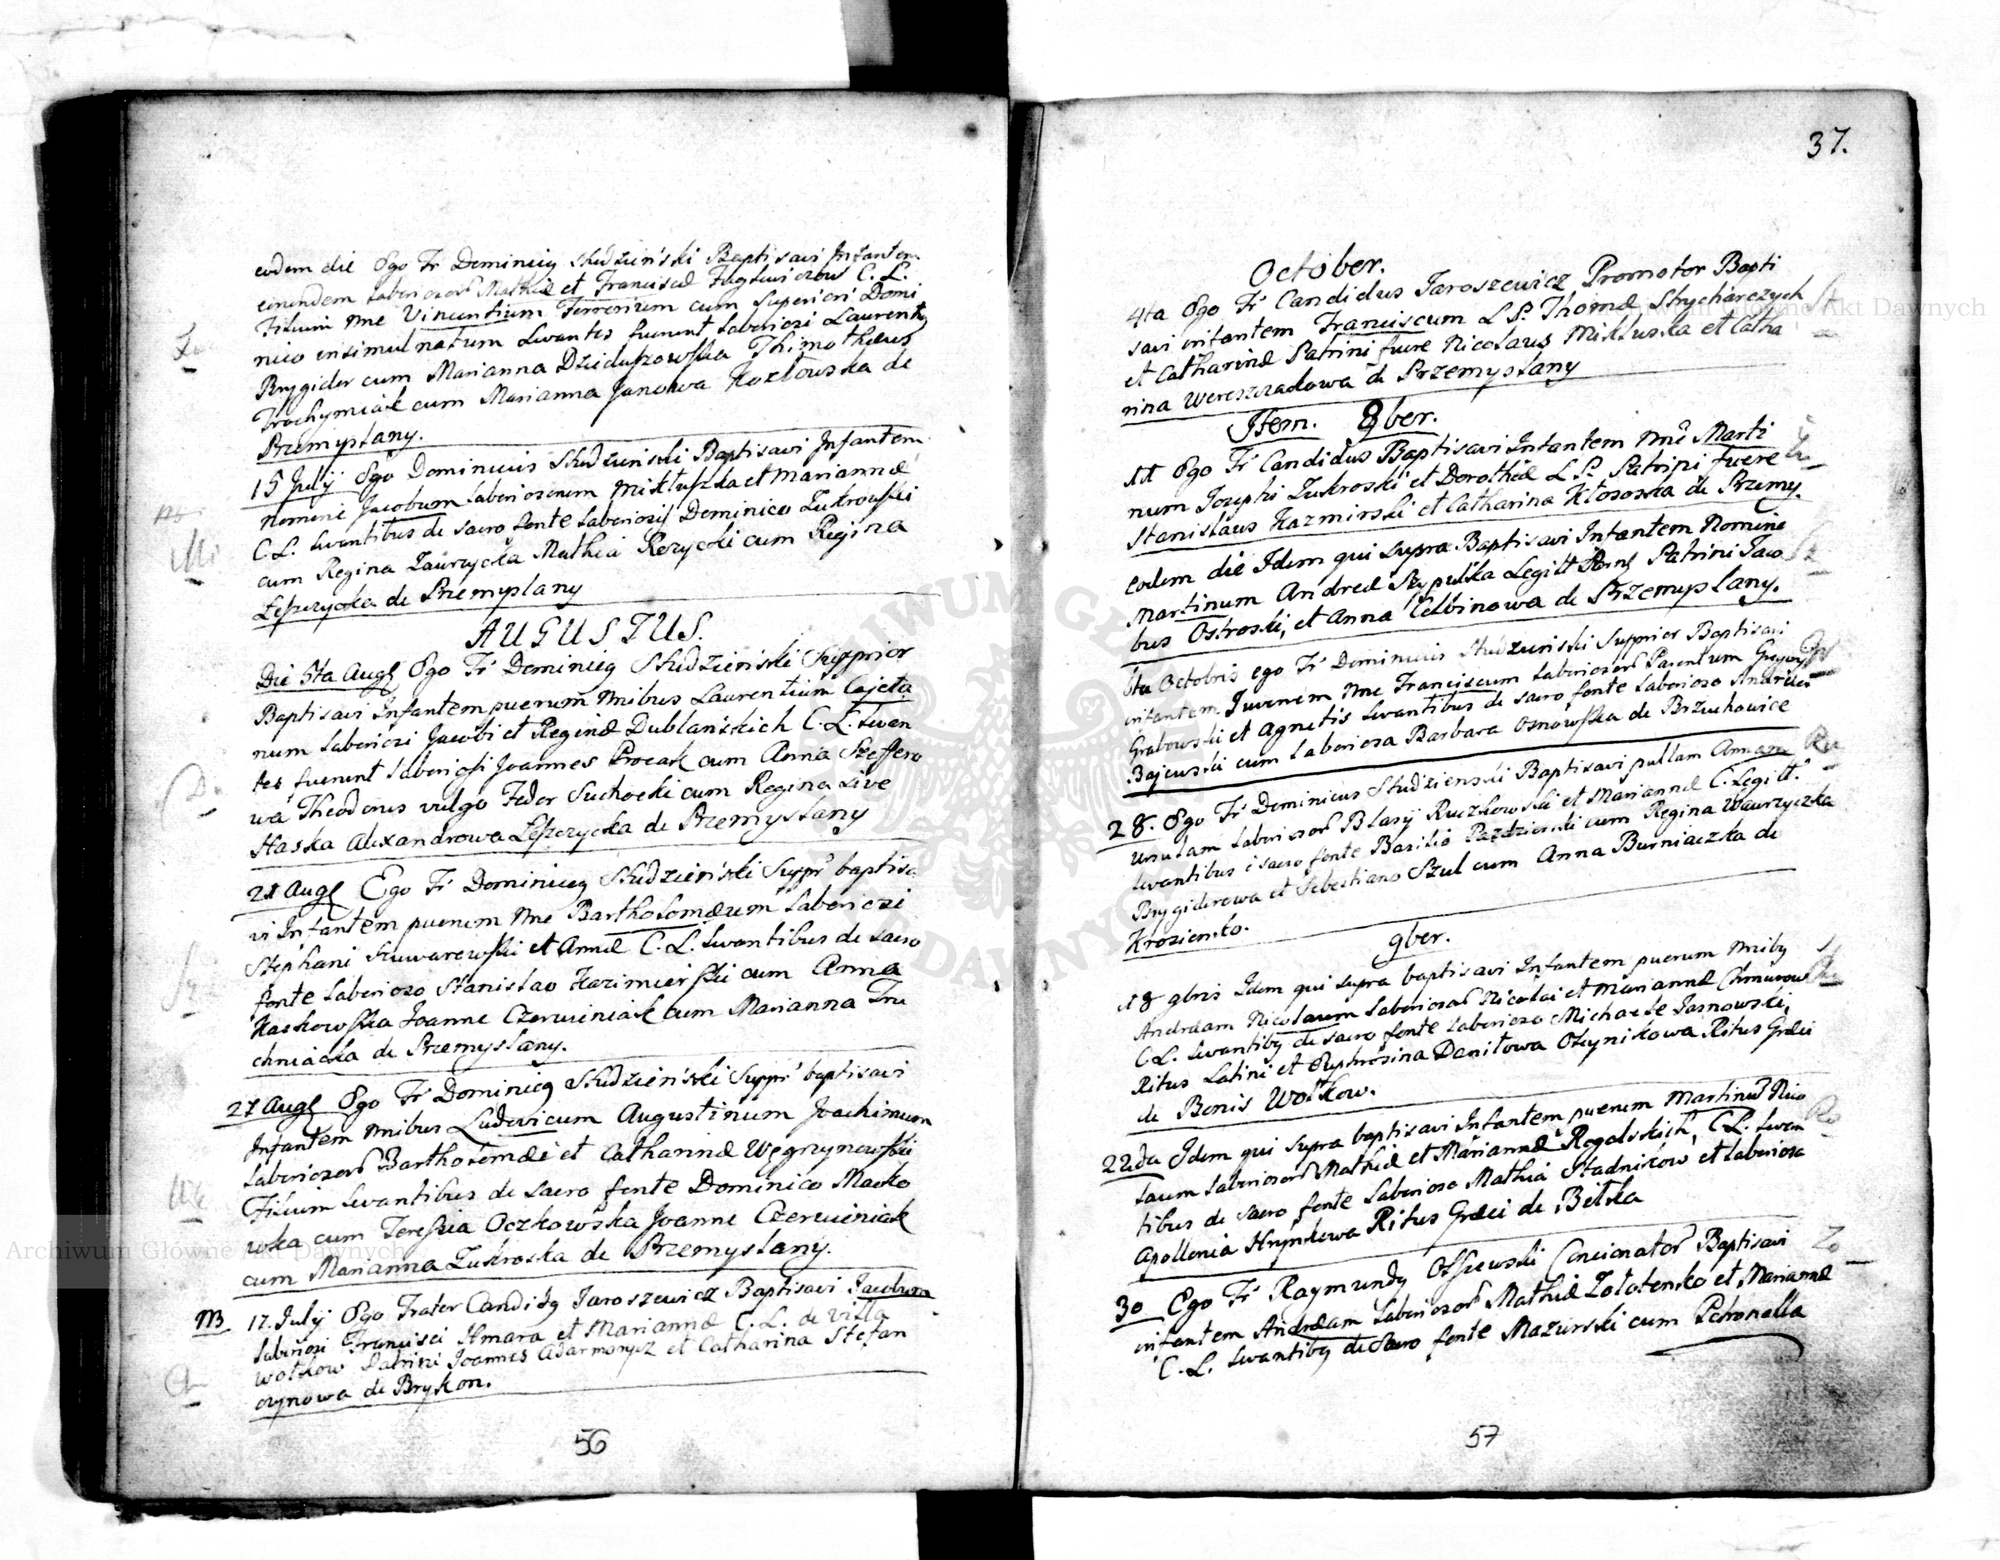 eodem die Ego Fr Dominicq Studzieński Baptisavi Infantem
eiusdem Laboriosorũ Mathiæ et Franciscæ C. L.
Filium nne Vincentium Ferrerium cum Superiori Domi
nico insimul natum Levantes fuerunt Laboriosi Laurentiq
Brygider cum Marianna Dziduszowska Thimotheus
Trochymiak cum Marianna Janowa Kozłowska de
Przemyslany.
15 July Ego Dominicus Studzieński Baptisavi Infantem
nomine Jacobum Laboriosorum Mikłuszka et Mariannæ
C. L. Levantibus de sacro fonte Laboriosis Dominico Zukrowski
cum Regina Laurzycka Mathia Rozycki cum Regina
Łeszczycka de Przemyslany
AUGUSTUS.
Die 5ta Augq Ego Fr Dominicq Studzieński Supprior
Baptisavi Infantem puerum nnibus Laurentium Cajeta
num Laboriosi Jacobi et Reginæ Dublańskich C. L. Levan
tes fuerunt Laboriosi Joannes Procak cum Anna Szeffero
wa Theodorus vulgo Fedor Suchocki cum Regina sive
Haska Alexandrowa Łeszczycka de Przemyslany
21 Augq Ego Fr Dominicq Studzieński Suppr baptisa
vi Infantem puerum nne Bartholomæum Laboriosi
Stephani Szuwarowski et Annæ C. L. Levantibus de sacro
fonte Laborioso Stanislao Kazimierski cum Anna
Kaskowska Joanne Czerwieniak cum Marianna Tru
chniacka de Przemyslany.
27 Augq Ego Fr Dominicq Studzieński Suppr baptisavi
Infantem nnibus Ludovicum Augustinum Joachimum
Laboriosorũ Bartholomæi et Catharinæ Węgrzynowski
Filium Levantibus de sacro fonte Dominico Macko
wka cum Teressia Oczkowska Joanne Czerwieniak
cum Marianna Zukroska de Przemyslany.
NB 17. July Ego Frater Candidq Jaroszewicz Baptisavi Jacobum
Laboriosi Francisci Hmara et Mariannæ C. L. de villa
Wołkow Patrini Joannes Adarmonycz et Catharina Stefan
czynowa de Brykon.
56
37.
October.
4ta Ego Fr Candidus Jaroszewicz Promotor Bapti
savi infantem Franciscum L P. Thomæ Strycharczych
et Catharinæ Patrini fuere Nicolaus Mikłuska et Catha
rina Wereszczadowa de Przemyslany
Item. 8ber.
11 Ego Fr Candidus Baptisavi Infantem nne Marti
num Josephi Zukroski et Dorothiæ L P. Patrini fuere
Stanislaus Kazmirski et Catharina Kłososka de Przemy.
eodem die Idem qui supra Baptisavi Infantem Nomine
Martinum Andreæ Szypulka Legitt Parnt Patrini Jaco
bus Ostroski, et Anna Celbinowa de Przemyslany.
6ta Octobris ego Fr Dominicus Studzienski Supprior Baptisavi
infantem Juvenem nne Franciscum Laboriosorũ Parentum Gregory
Grabowski et Agnetis Levantibus de sacro fonte Laborioso Andreas
Bajewski cum Laboriosa Barbara Osnowska de Brzuchowice
28. Ego Fr Dominicus Studzienski Baptisavi puellam Annam
Ursulam Laboriosorũ Blasy Ruczkowski et Mariannæ C. Legitt.
Levantibus è sacro fonte Basilio Pazdzierski cum Regina Wawrzyczka
Brygiderowa et Sebestiano Szul cum Anna Burniaczka de
Krosienko.
9ber.
18 9bris Idem qui supra baptisavi Infantem puerum nnibq
Andræam Nicolaum Laboriosorũ Nicolai et Mariannæ Chmurow
C L. Levantibq de sacro fonte Laborioso Michaele Jasnowski,
Ritus Latini et Euphrosina Daniłowa Oleynikowa Ritus Græci
de Bonis Wołkow.
22da Idem qui supra baptisavi Infantem puerum Martinũ Nico
laum Laboriosorũ Mathiæ et Mariannæ Rogalskich, C L. Levan
tibus de sacro fonte Laborioso Mathia Stadnikow et Laboriosa
Apollonia Hrynkowa Ritus Græci de Biłka
30 Ego Fr Raymundq Olszewski Concionator Baptisavi
infantem Andræam Laboriosorũ Mathiæ Zołotenko et Mariannæ
C. L. Levantibq de Sacro fonte Mazurski cum Petronella
57
Archiwum Główne Akt Dawnych